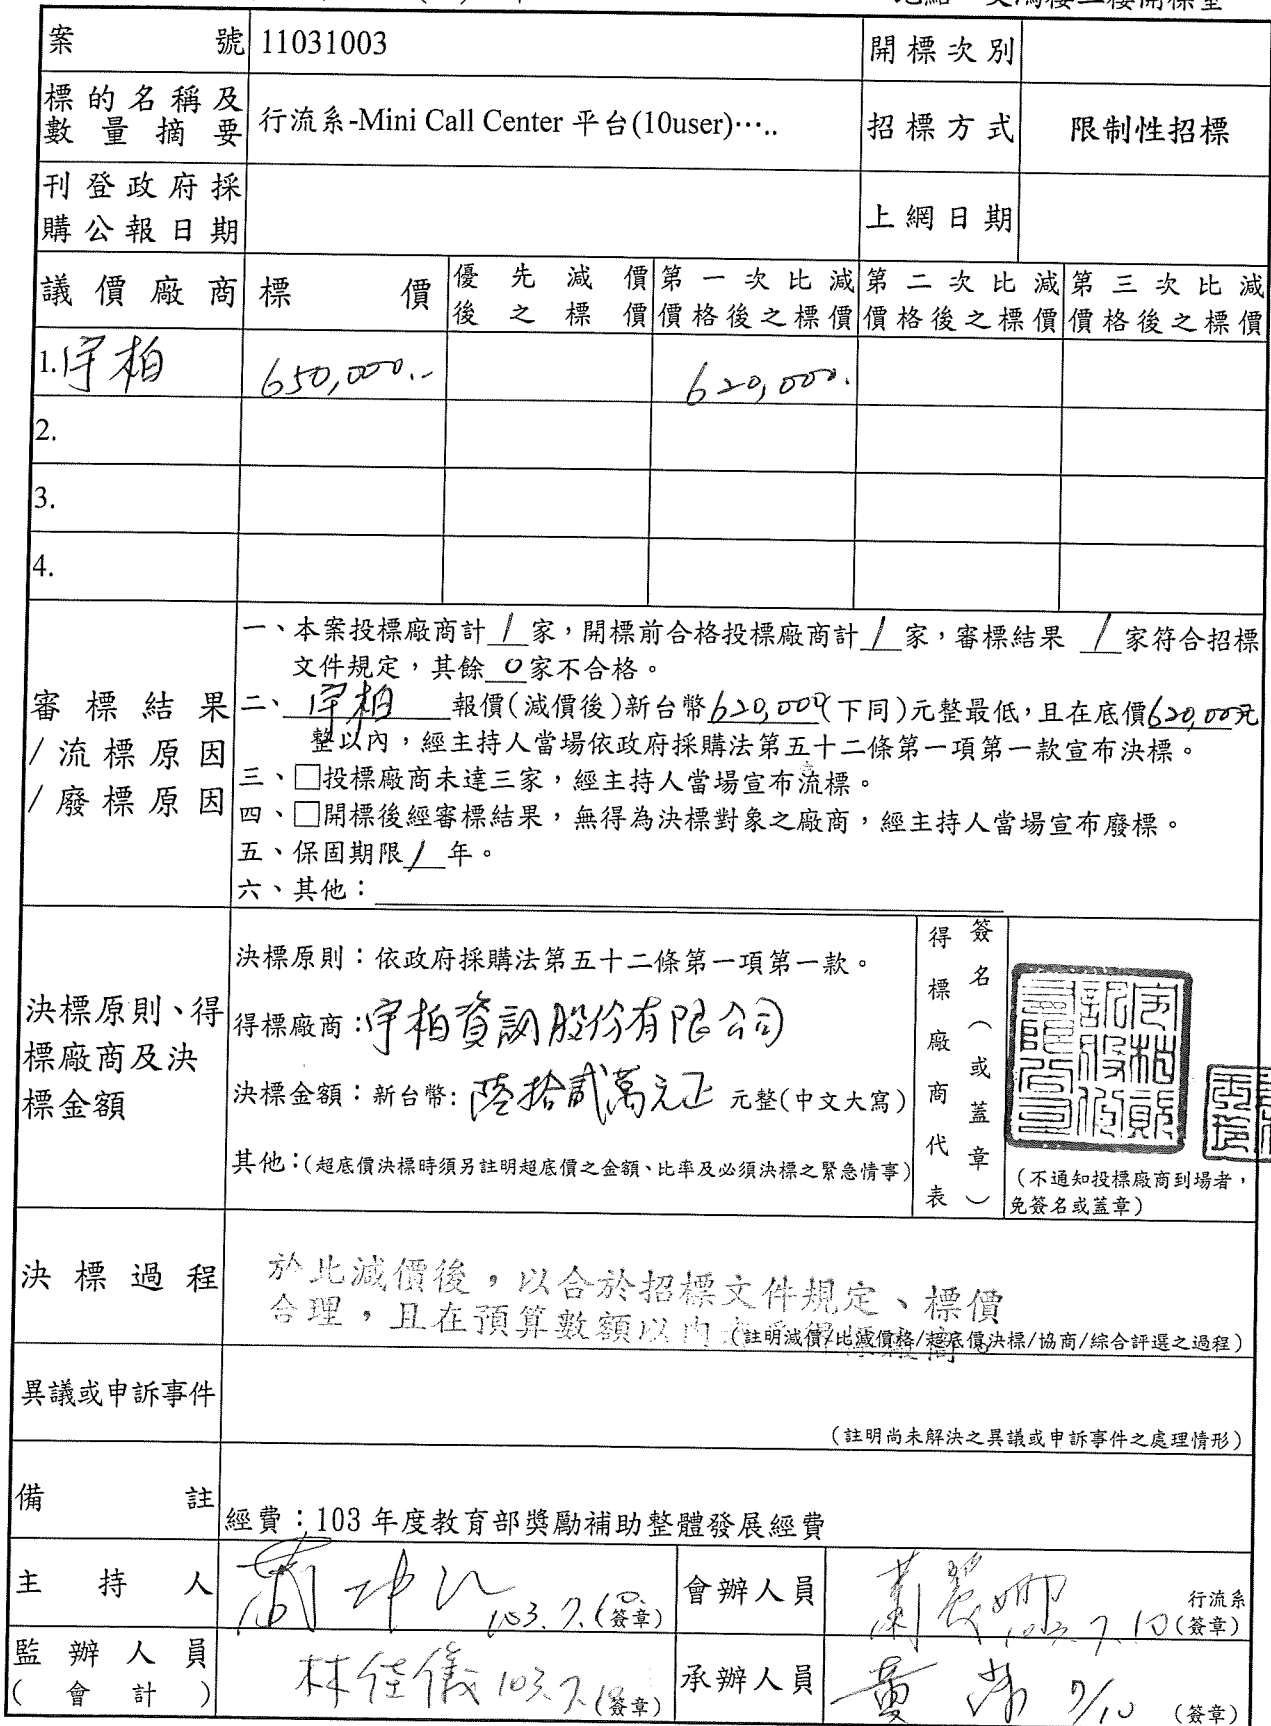 案號 11031003 開標次別
標的名稱及數量摘要 行流系-Mini Call Center 平台(10user)‧‧‧.. 招標方式 限制性招標
刊登政府採購公報日期 上網日期
議價廠商 標價 優先減價後之標價 第一次比減價格後之標價 第二次比減價格後之標價 第三次比減價格後之標價
1.宇柏 650,000.- 620,000.
2.
3.
4.
審標結果/流標原因/廢標原因
一、本案投標廠商計 1 家，開標前合格投標廠商計 1 家，審標結果 1 家符合招標
文件規定，其餘 0 家不合格。
二、宇柏 報價(減價後)新台幣620,000(下同)元整最低，且在底價620,00元
整以內，經主持人當場依政府採購法第五十二條第一項第一款宣布決標。
三、□投標廠商未達三家，經主持人當場宣布流標。
四、□開標後經審標結果，無得為決標對象之廠商，經主持人當場宣布廢標。
五、保固期限 1 年。
六、其他：
決標原則、得標廠商及決標金額
決標原則：依政府採購法第五十二條第一項第一款。
得標廠商：宇柏資訊股份有限公司
決標金額：新台幣: 陸拾貳萬元正 元整(中文大寫)
其他：(超底價決標時須另註明超底價之金額、比率及必須決標之緊急情事)
得標廠商代表
簽名（或蓋章）
(不通知投標廠商到場者，
免簽名或蓋章)
決標過程
於比減價後，以合於招標文件規定、標價
合理，且在預算數額以內
(註明減價/比減價格/超底價決標/協商/綜合評選之過程)
異議或申訴事件
(註明尚未解決之異議或申訴事件之處理情形)
備註 經費：103 年度教育部獎勵補助整體發展經費
主持人 103.7.10.(簽章) 會辦人員 蕭麗娜 103.7.10 行流系(簽章)
監辦人員(會計) 林佳儀 103.7.10(簽章) 承辦人員 黃 7/10 (簽章)